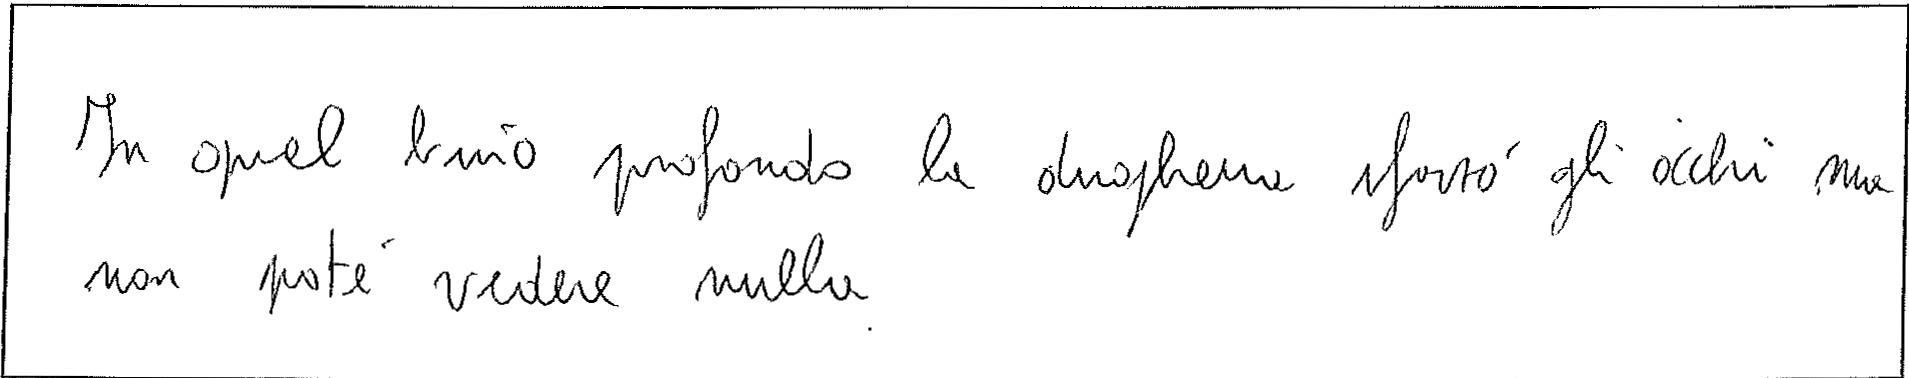 In quel buio profondo la droghera sforzó gli occhi ma
non poté vedere nulla.